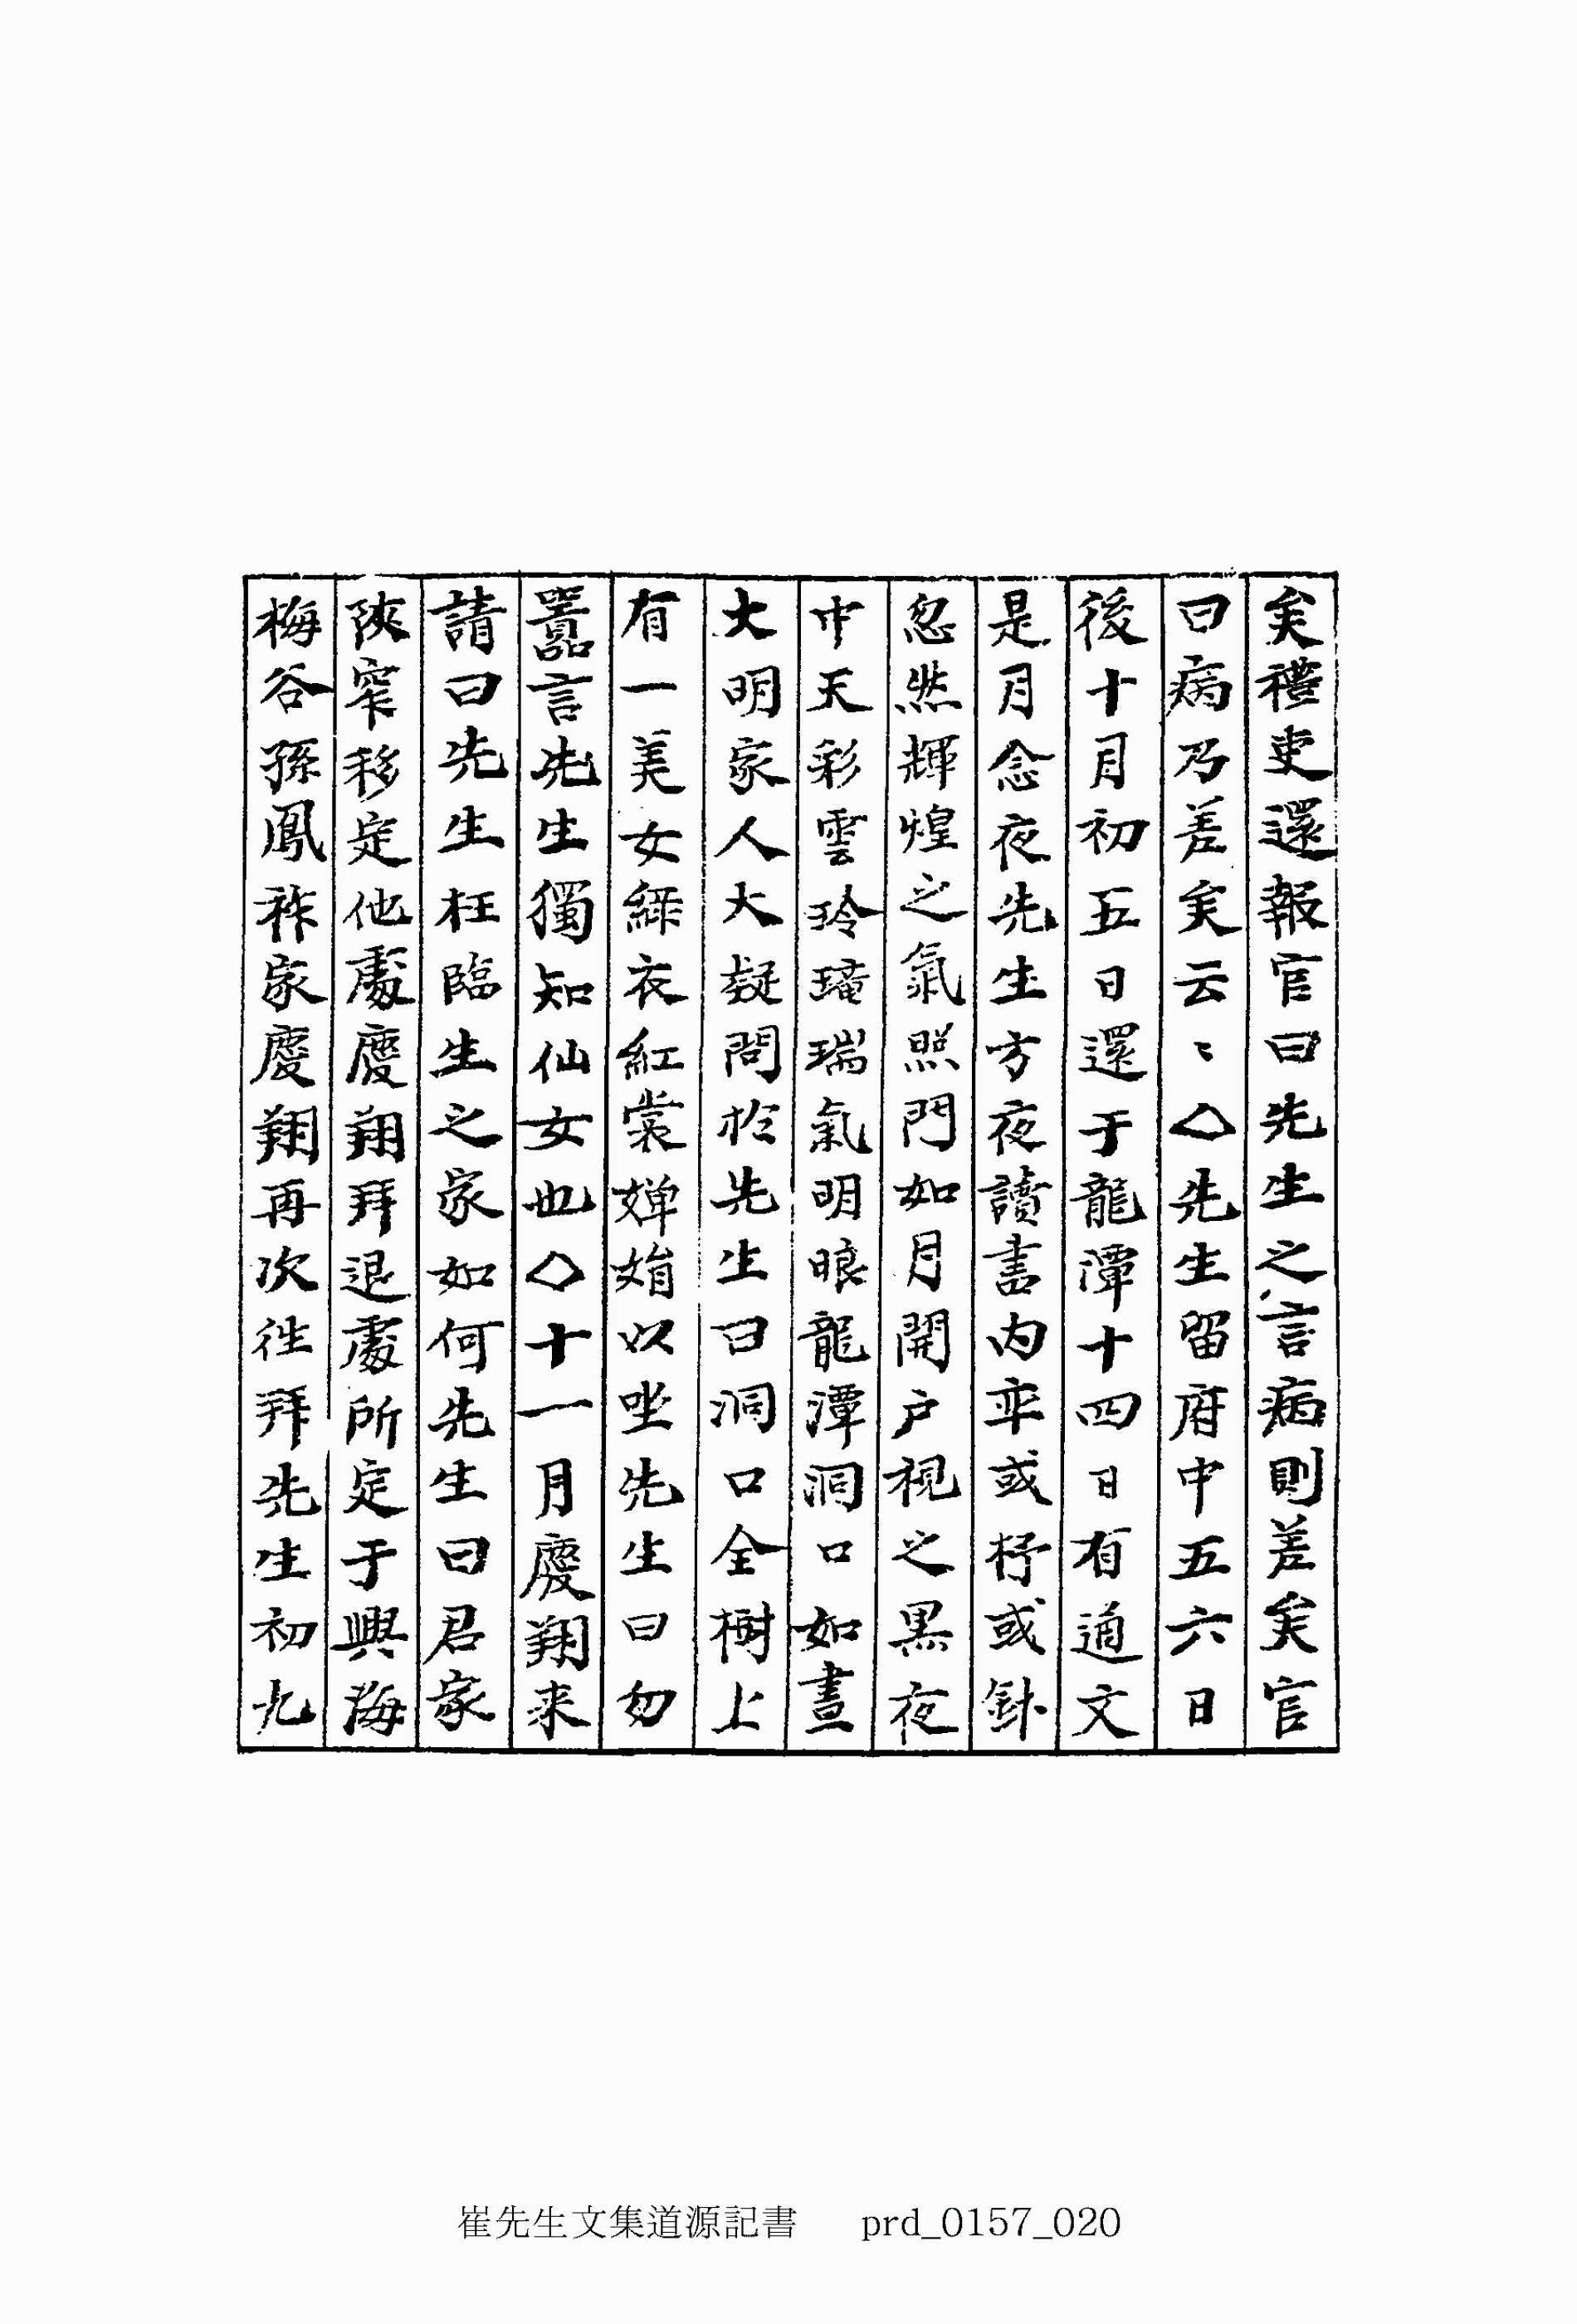 矣禮吏還報官曰先生之言病則差矣官
曰病乃差矣云〻◇先生留府中五六日
後十月初五日還于龍潭十四日有通文
是月念夜先生方夜讀書內卒或杼或針
忽然輝煌之氣照門如月開戶視之黑夜
中天彩雲玲瓏瑞氣明朗龍潭洞口如晝
大明家人大疑問於先生先生曰洞口全樹上
有一美女綠衣紅裳嬋娟以坐先生曰勿
囂言先生獨知仙女也◇十一月慶翔來
請曰先生枉臨生之家如何先生曰君家
陜窄移定他處慶翔拜退處所定于興海
梅谷孫鳳祚家慶翔再次往拜先生初九
崔先生文集道源記書 prd_0157_020